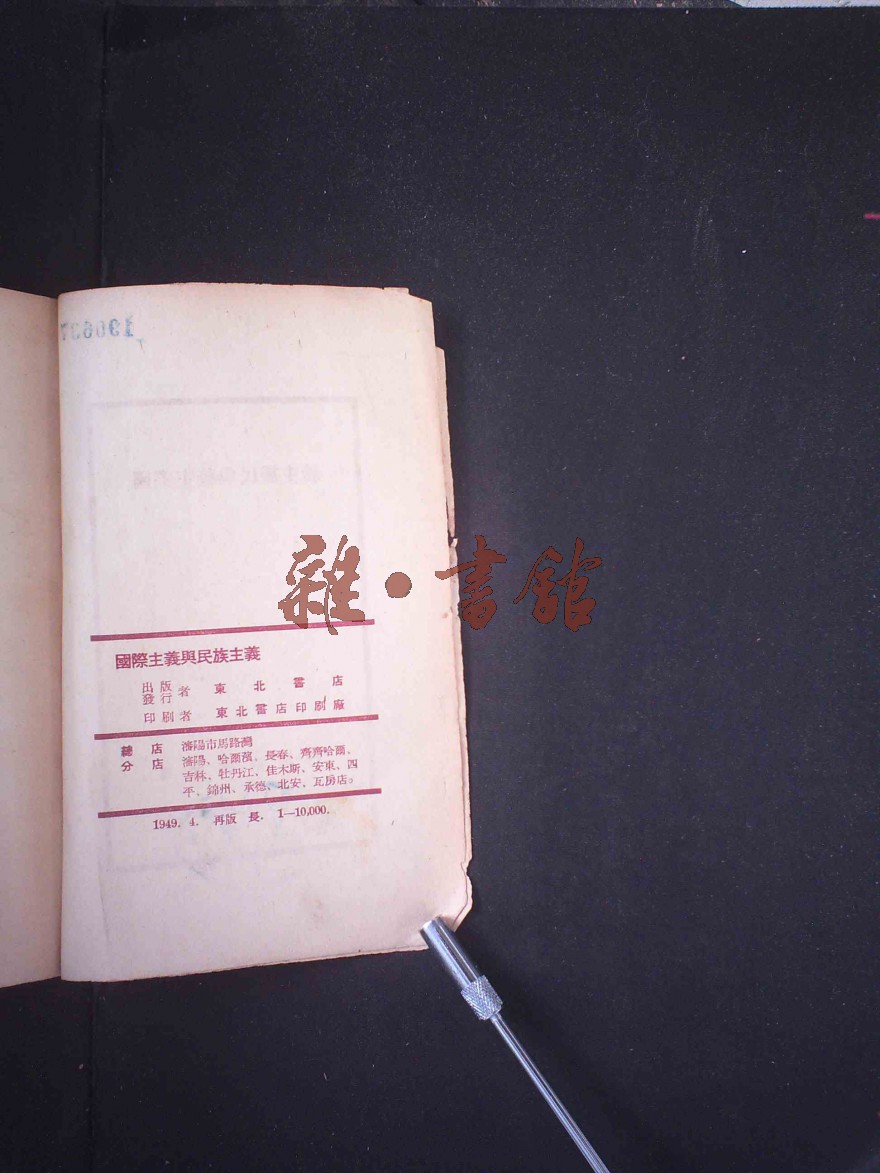 190637
雜·書館
國際主義與民族主義
出版
發行者 東北書店
印刷者 東北書店印刷廠
總店 瀋陽市馬路灣
分店 瀋陽、哈爾濱、長春、齊齊哈爾、
吉林、牡丹江、佳木斯、安東、四
平、錦州、承德、北安、瓦房店。
1949. 4. 再版 長. 1—10,000.